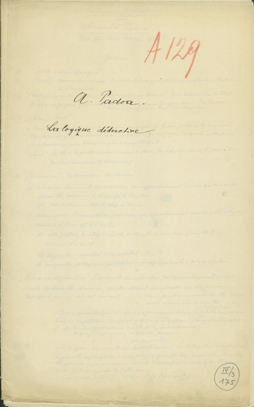 A 129
A. Padoa.
La logique déductive
IV/3
175